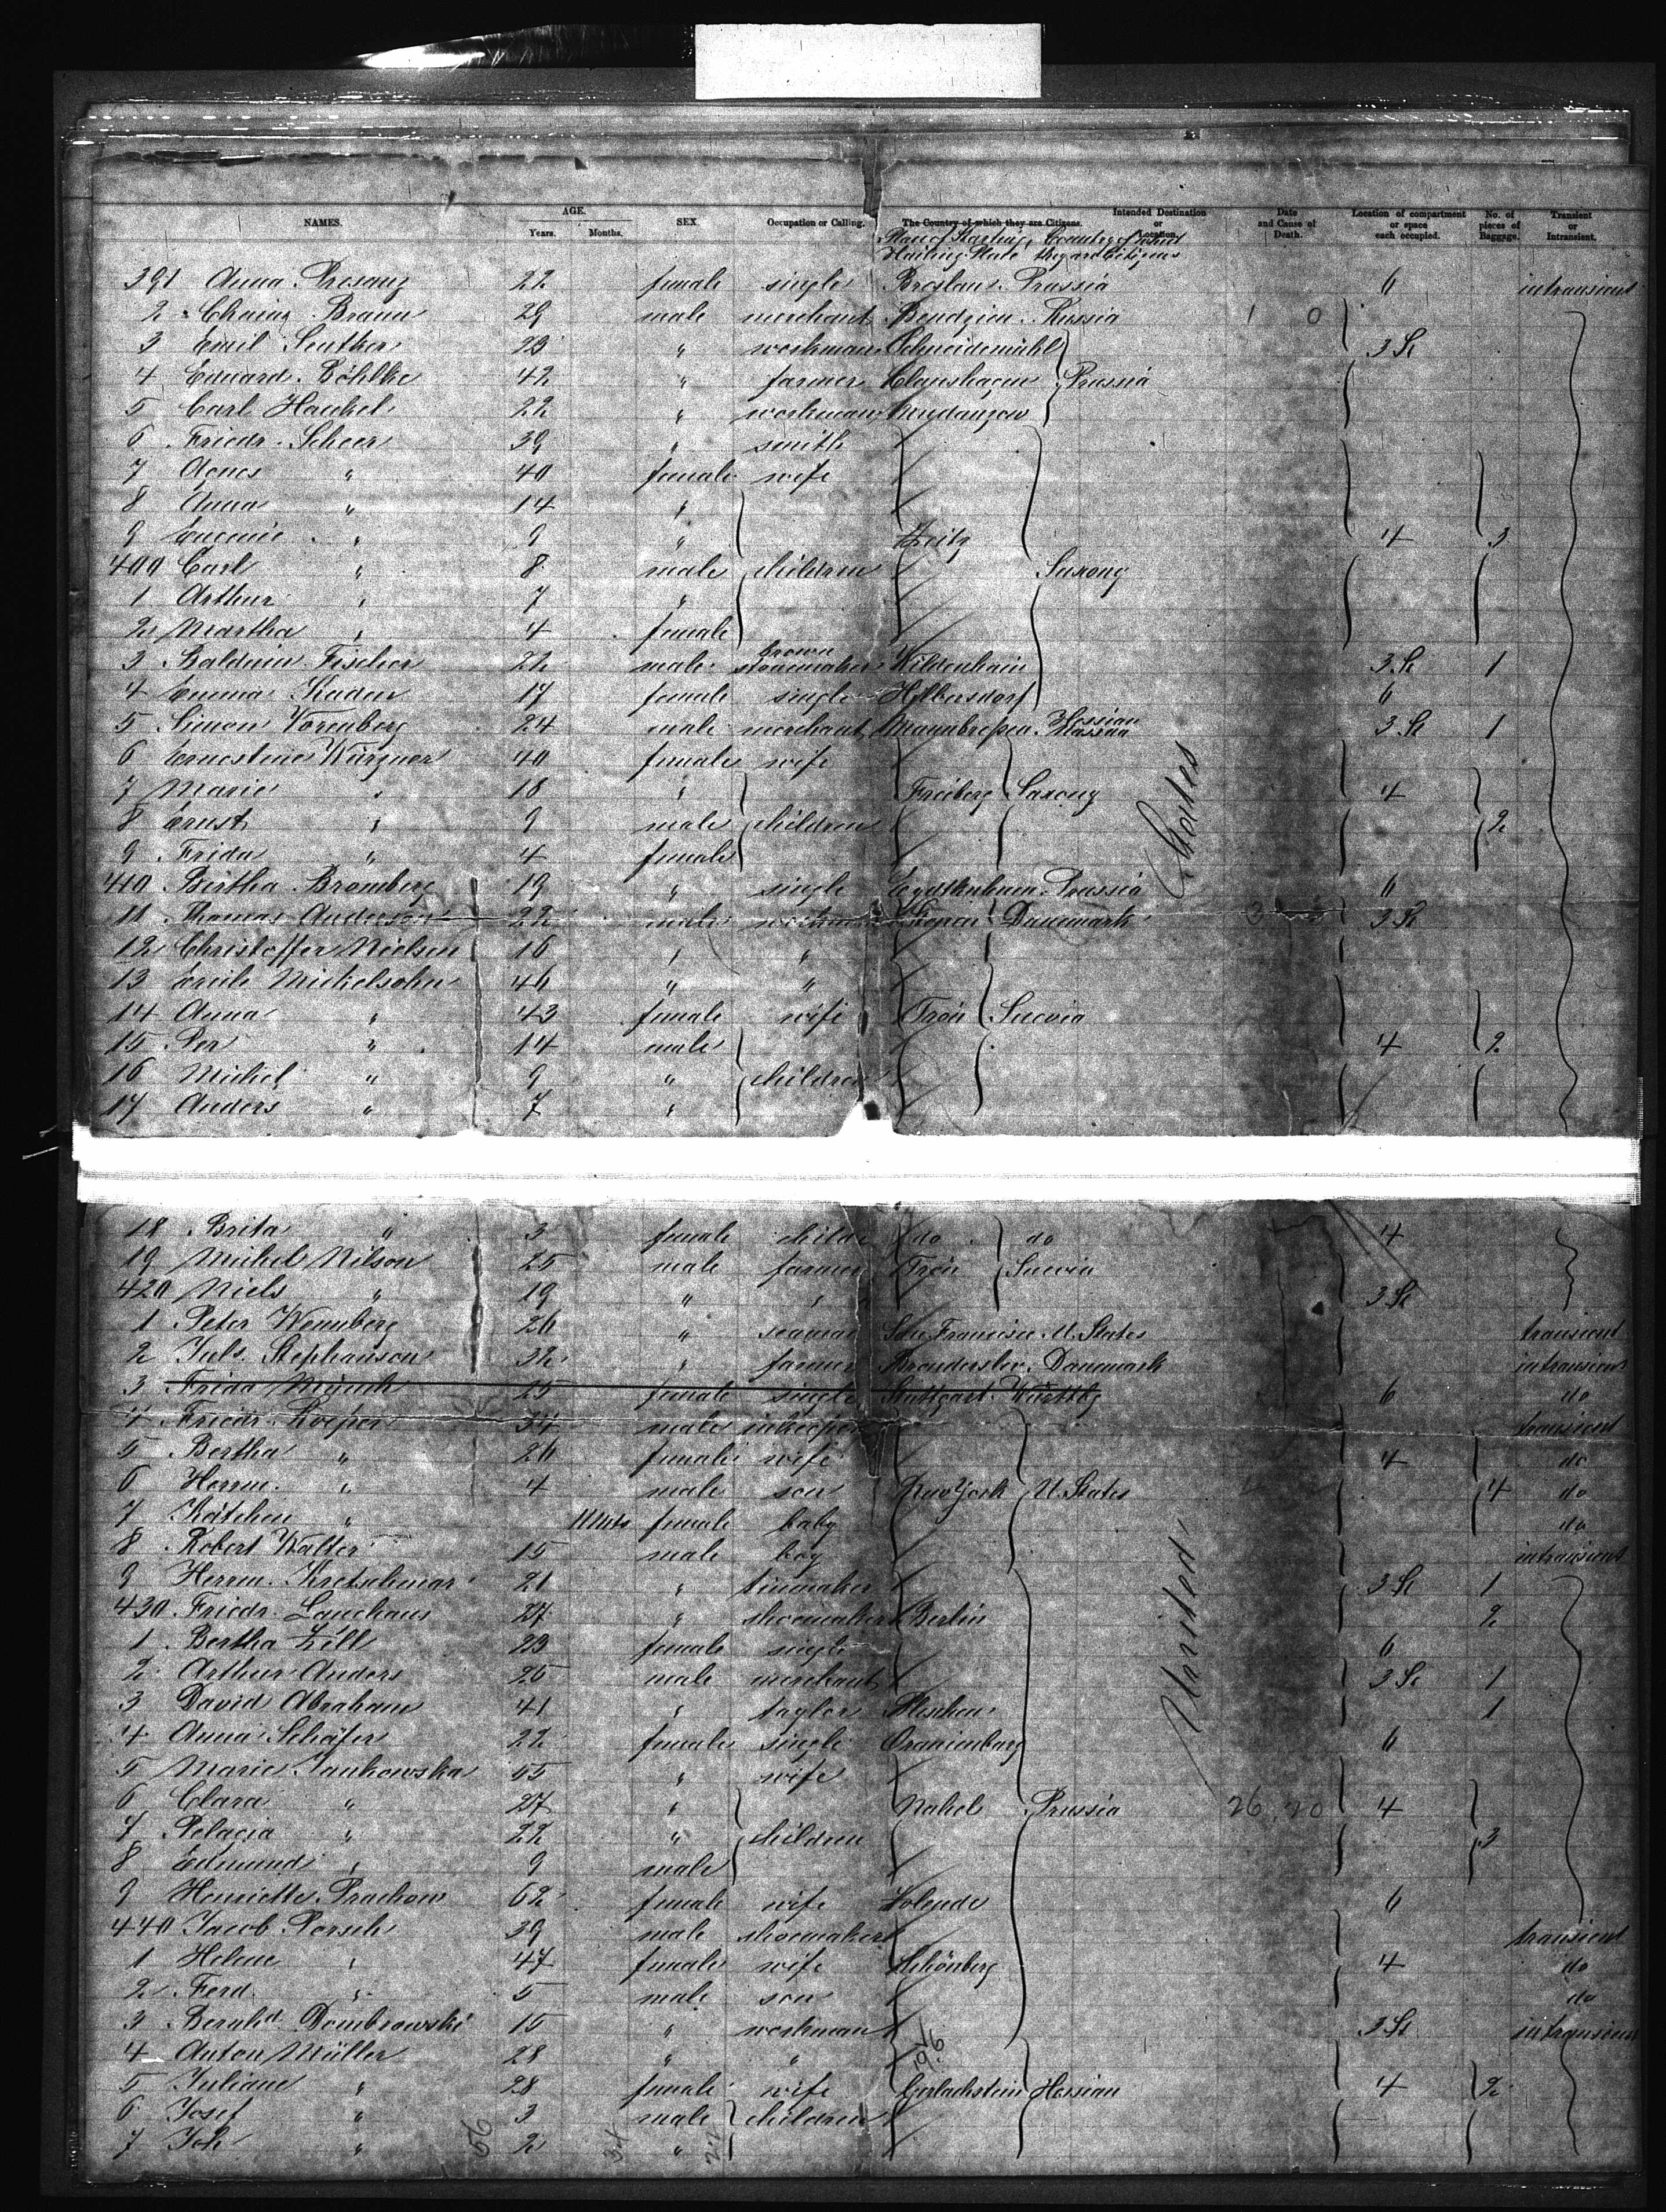 NAMES. AGE. Years. Months. SEX. Occupation or Calling. The Country of which they are Citizens. Intended Destination or Location. Date and Cause of Death. Location of compartment or space each occupied. No. of pieces of Baggage. Transient or Intransient.
Place of Starting Country of which
Hailing Place they are Citizens
391 Anna 22 female single Breslau Prussia 6 intransient
2 Braun 29 male merchant Bendzien Russia 1 0
3 Emil 23 " workman Schneidemühl 3 St
4 Eduard Böhlke 42 " farmer Clanshagen Prussia
5 Carl Hankel 22 " workman
6 Friedr. Scheer 39 " smith
7 Agnes " 40 female wife
8 Anna " 14 "
9 " 9 " Zeitz 4 3
400 Carl " 8 male children Saxony
1 Arthur " 7 "
2 Martha " 4 female
3 Balduin Fischer 22 male brown stonemaker Wildenhain 3 St 1
4 Emma Kaden 17 female single Hilbersdorf 6
5 Simon Vorenberg 24 male merchant Hessian 3 St 1
6 Ernestine Würzner 40 female wife
7 Marie " 18 " Freiberg Saxony 4
8 Ernst " 9 male children 2
9 Frida " 4 female
States
410 Bertha Bromberg 19 " single Prussia 6
11 Thomas Anderson 22 male workman Danemark 3 3 St
12 Christoffer Nielsen 16 " "
13 Mickelsohn 46 " "
14 Anna " 43 female wife Trön Suevia
15 Per " 14 male 4 2
16 Mickel " 9 " children
17 Anders " 7 "
18 Brita " 3 female child do do 4
19 Michel Nilson 25 male farmer Trön Suevia
420 Niels " 19 " " 3 St
1 Peter Wennberg 26 " seaman San Francisco U. States transient
2 Juls. Stephanson 32 " farmer Bronderslev Danemark intransient
3 Frida Münch 25 female single Stuttgart Württbg 6 do
4 Friedr. Loeper 34 male transient
5 Bertha " 26 female wife 4 do
6 Herrm. " 4 male son New York U. States 4 do
7 Kätchen " 11 Mts female baby do
8 Robert Walter 15 male boy intransient
9 Herrm. Kretschmar 21 " 3 St 1
430 Friedr. 27 " shoemaker Berlin 2
United
1 Bertha Zill 23 female single 6
2 Arthur Anders 25 male merchant 3 St 1
3 David Abraham 41 " taylor Pleschen 1
4 Anna Schäfer 22 female single Oranienburg 6
5 Marie Jankowska 55 " wife
6 Clara " 27 " Nakel Prussia 26 20 4
7 Pelagia " 22 " children 3
8 Edmund " 9 male
9 Henriette Prachow 62 female wife 6
440 Jacob Porsch 39 male shoemaker transient
1 Helene " 47 female wife Schönberg 4 do
2 Ferd. " 5 male son do
3 Dombrowski 15 " workman 3 St intransient
4 Anton Müller 28 " "
5 Juliane " 28 female wife Gerlachstein Hessian 4 2
6 Josef " 3 male children
7 Joh. " 2 "
56 34 22